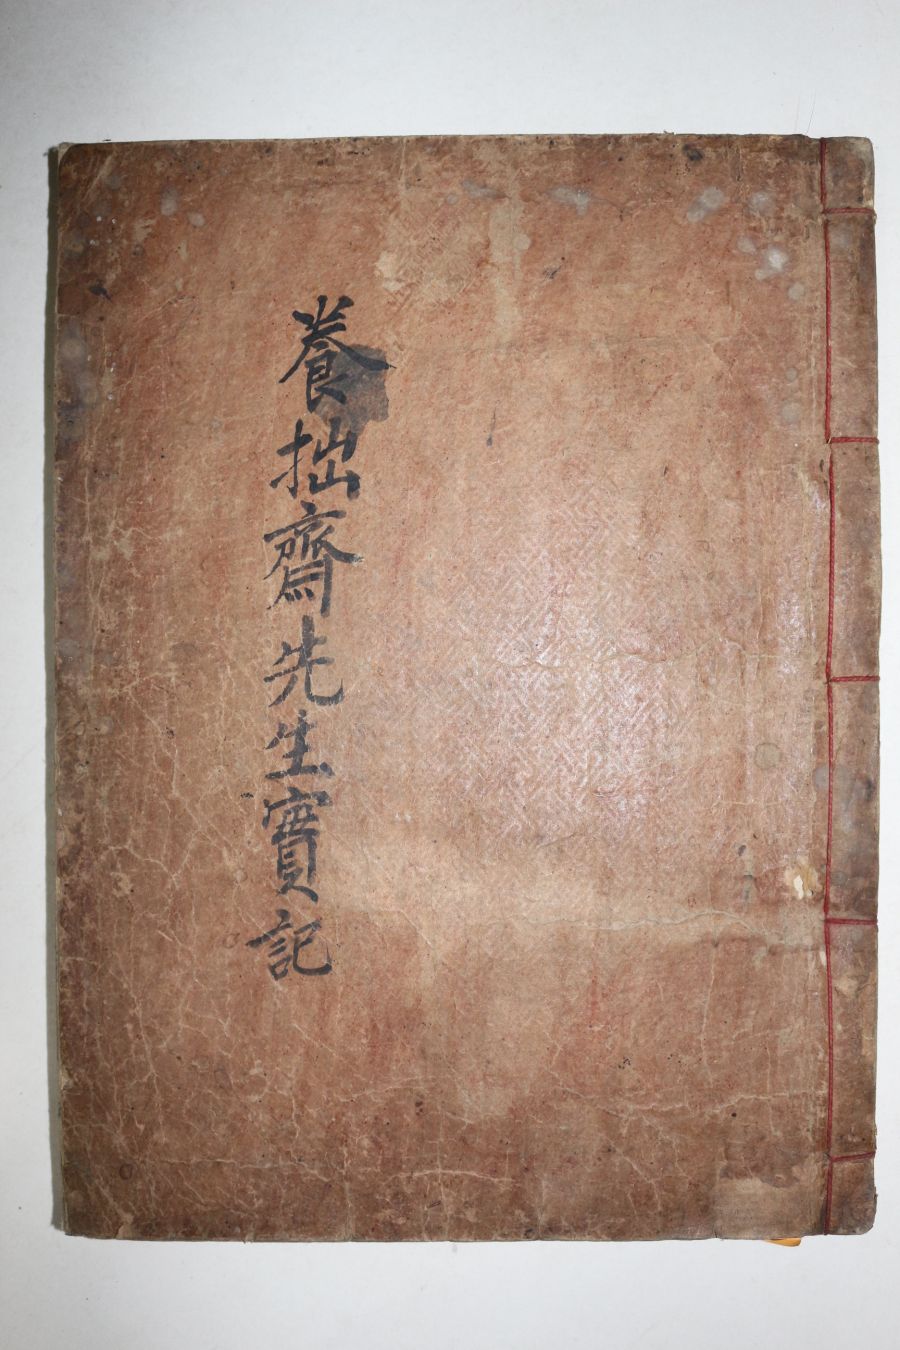 養拙齋先生實記